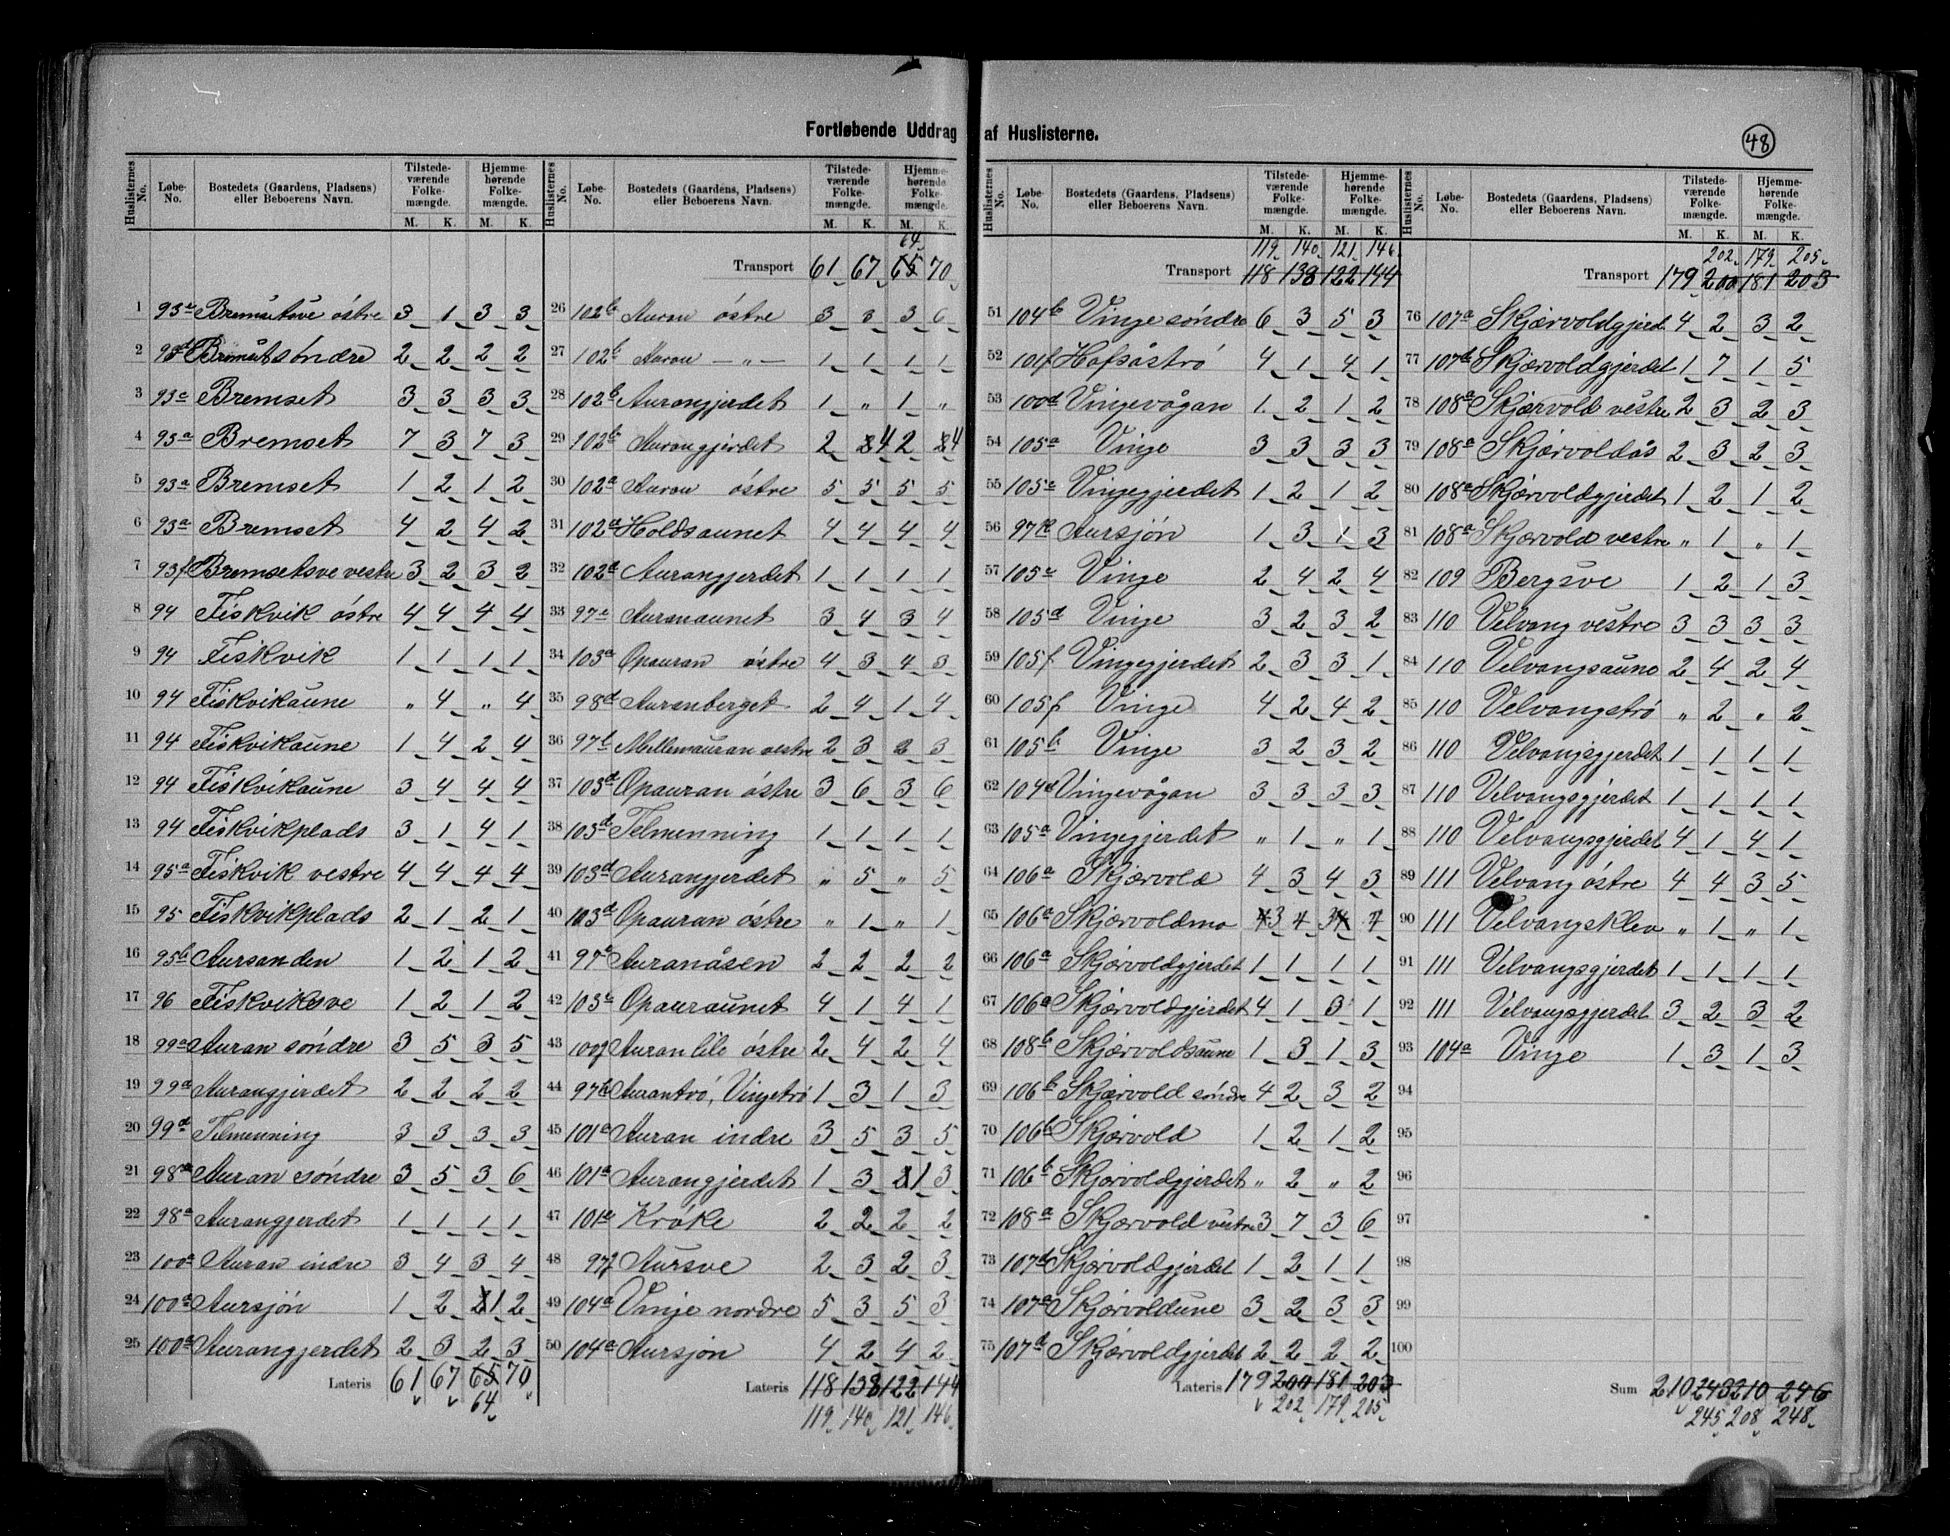 Fortløbende Uddrag af Huslisterne.
48
Huslisternes No. | Løbe-No. | Bostedets (Gaardens, Pladsens) eller Beboerens Navn. | Tilstedeværende Folkemængde. M. K. | Hjemmehørende Folkemængde. M. K.
1 93 Bremsetsve östre 3 1 3 3
2 93d Bremset söndre 2 2 2 2
3 93c Bremset 3 3 3 3
4 93a Bremset 7 3 7 3
5 93a Bremset 1 2 1 2
6 93a Bremset 4 2 4 2
7 93f Bremsetsve vestre 3 2 3 2
8 94 Fiskvik östre 4 4 4 4
9 94 Fiskvik 1 1 1 1
10 94 Fiskvikaune " 4 " 4
11 94 Fiskvikaune 1 4 2 4
12 94 Fiskvikaune 3 4 4 4
13 94 Fiskvikplads 3 1 4 1
14 95a Fiskvik vestre 4 4 4 4
15 95 Fiskvikplads 2 1 2 1
16 95b Aursanden 1 2 1 2
17 96 Fiskviksve 1 2 1 2
18 99a Auran söndre 3 5 3 5
19 99a Aurangjerdet 2 2 2 2
20 99d Telmenning 3 3 3 3
21 98a Auran söndre 3 5 3 6
22 98a Aurangjerdet 1 1 1 1
23 100a Auran indre 3 4 3 4
24 100a Aursjön 1 2 2 1 2
25 100a Aurangjerdet 2 3 2 3
Lateris 61 67 65 70
64
64
Transport 61 67 65 70
26 102b Auran östre 3 8 3 6
27 102b Auran — " — 1 1 1 1
28 102b Aurangjerdet 1 " 1 "
29 102b Aurangjerdet 2 4 2 4
30 102a Auran östre 5 5 5 5
31 102d Holdsaunet 4 4 4 4
32 102d Aurangjerdet 1 1 1 1
33 97e Auranaunet 3 4 3 4
34 103a Opauran östre 4 3 4 3
35 98d Auranberget 2 4 1 4
36 97b Mellemauran vestre 2 3 2 3
37 103d Opauran östre 3 6 3 6
38 103d Telmenning 1 1 1 1
39 103d Aurangjerdet " 5 " 5
40 103d Opauran östre " 1 " 1
41 97a Auranåsen 2 2 2 2
42 103c Opauraunet 4 1 4 1
43 100f Auran lile östre 2 4 2 4
44 97b Aurantrö, Vingetrö 1 3 1 3
45 101a Auran indre 3 5 3 5
46 101a Aurangjerdet 1 3 2 1 3
47 101a Kröke 2 2 2 2
48 97f Aursve 2 3 2 3
49 104a Vinje nordre 5 3 5 3
50 104a Aursjön 4 2 4 2
Lateris 118 138 122 144
119 140 121 146
Huslisternes No. | Løbe-No. | Bostedets (Gaardens, Pladsens) eller Beboerens Navn. | Tilstedeværende Folkemængde. M. K. | Hjemmehørende Folkemængde. M. K.
119 140 121 146
Transport 118 138 122 144
51 104b Vinge söndre 6 3 5 3
52 101f Hofsåströ 4 1 4 1
53 100d Vingevågan 1 2 1 2
54 105a Vinge 3 3 3 3
55 105a Vingegjerdet 1 2 1 2
56 97k Aursjön 1 3 1 3
57 105c Vinge 2 4 2 4
58 105d Vinge 3 2 3 2
59 105f Vingegjerdet 2 3 3 1
60 105f Vinge 4 2 4 2
61 105b Vinge 3 2 3 2
62 104d Vingevågan 3 3 3 3
63 105a Vingegjerdet " 1 " 1
64 106a Skjærvold 4 3 4 3
65 106a Skjærvoldmo 4 3 4 3 4 4
66 106a Skjærvoldgjerdet 1 1 1 1
67 106a Skjærvoldgjerdet 4 1 3 1
68 108b Skjærvoldsaune 1 3 1 3
69 106b Skjærvold söndre 4 2 3 2
70 106b Skjærvold 1 2 1 2
71 106b Skjærvoldgjerdet " 2 " 2
72 108a Skjærvold vestre 3 7 3 6
73 107d Skjærvoldgjerdet 1 2 1 1
74 107a Skjærvoldune 3 2 3 3
75 107d Skjærvoldgjerdet 2 2 2 2
Lateris 179 200 181 203
202 179 205
202 179 205
Transport 179 200 181 203
76 107a Skjærvoldgjerd 4 2 3 2
77 107b Skjærvoldgjerdet 1 7 1 5
78 108a Skjærvold vestre 2 3 2 3
79 108a Skjærvoldås 2 3 2 3
80 108a Skjærvoldgjerdet 1 2 1 2
81 108a Skjærvold vestre " 1 " 1
82 109 Bergsve 1 2 1 3
83 110 Velvang vestre 3 3 3 3
84 110 Velvangsaune 2 4 2 4
85 110 Velvangströ " 2 " 2
86 110 Velvangsgjerdet 1 1 1 1
87 110 Velvangsgjerdet 1 1 1 1
88 110 Velvangsgjerdet 4 1 4 1
89 111 Velvang östre 4 4 3 5
90 111 Velvangsklev " 1 " 1
91 111 Velvangsgjerdet 1 1 1 1
92 111 Velvangsgjerdet 3 2 3 2
93 104a Vinge 1 3 1 3
94
95
96
97
98
99
100
Sum 210 243 210 246
245 208 248